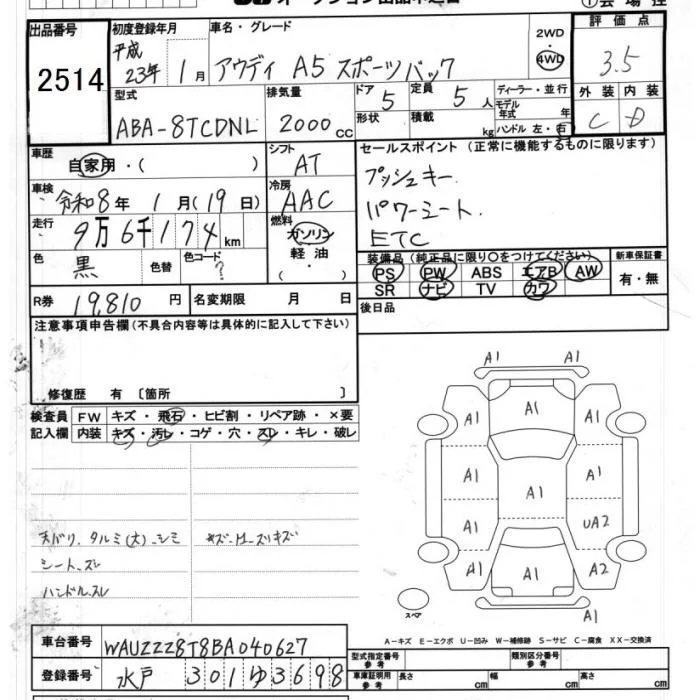 オークション出品申込書
①会場控
出品番号
2514
初度登録年月
平成
23年 1月
車名・グレード
アウディ A5 スポーツバック
2WD
・
4WD
評価点
3.5
外装 内装
C D
型式
ABA-8TCDNL
排気量
2000cc
ドア
5
形状
定員
5人
積載
kg
ディーラー・並行
モデル年式 年
ハンドル 左・右
車歴
自家用・( )
シフト
AT
車検
令和8年 1月(19日)
冷房
AAC
走行
9万6千174km
燃料
ガソリン
軽油
・
色
黒
色替
色コード
?
R券
19,810円
名変期限 月 日
セールスポイント (正常に機能するものに限ります)
プッシュキー.
パワーシート.
ETC
装備品 (純正品に限り○をつけてください)
新車保証書
PS PW ABS エアB AW
SR ナビ TV カワ
有・無
後日品
注意事項申告欄(不具合内容等は具体的に記入して下さい)
修復歴 有 〔箇所 〕
検査員
記入欄
FW キズ・飛石・ヒビ割・リペア跡・×要
内装 キズ・汚レ・コゲ・穴・スレ・キレ・破レ
天バリ.タルミ(大).シミ
シート.スレ
ハンドル.スレ
A1 A1
A1 A1 A1
A1 A1 A1
A1 UA2
A1 A1 A2
A1
スペア
A-キズ E-エクボ U-凹み W-補修跡 S-サビ C-腐食 XX-交換済
車台番号
WAUZZZ8T8BA040627
登録番号
水戸 301 ゆ 3698
型式指定番号
参考
類別区分番号
参考
車庫証明用
参考
長さ cm
幅 cm
高さ cm